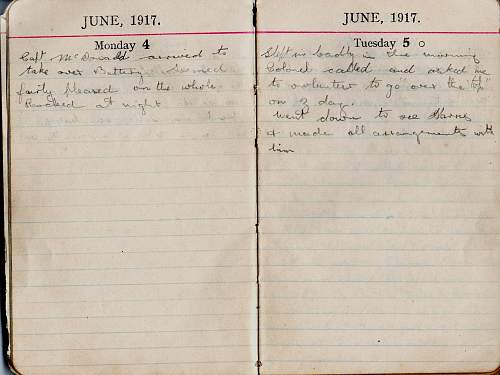 JUNE, 1917.
Monday 4
Capt McDonald arrived to
take over Battery. Seemed
fairly pleased on the whole.
at night
JUNE, 1917.
Tuesday 5
Slept in badly in the morning
Colonel called and asked me
to volunteer to go over the top
on Z day.
Went down to see Harris
& made all arrangements with
him